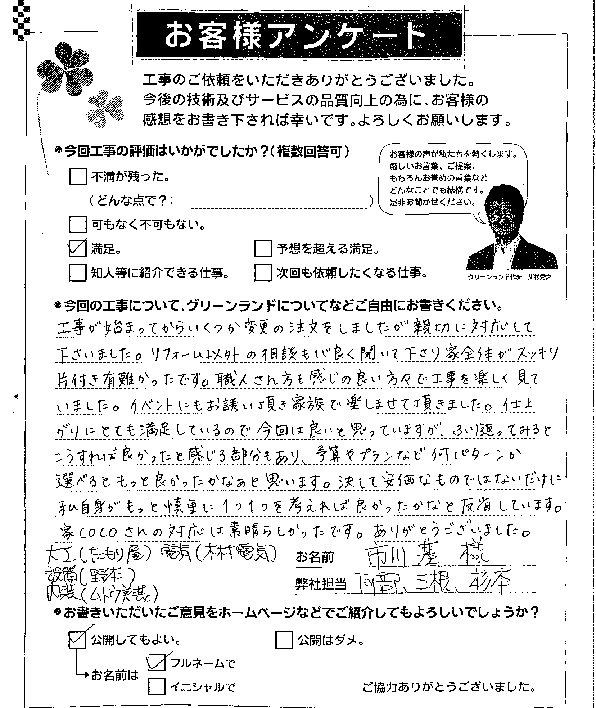 お客様アンケート
工事のご依頼をいただきありがとうございました。
今後の技術及びサービスの品質向上の為に、お客様の
感想をお書き下されば幸いです。よろしくお願いします。
*今回工事の評価はいかがでしたか?(複数回答可)
お客様の声が私たちを熱くします。
嬉しいお言葉、ご提案、
もちろんお叱りの言葉など
どんなことでも結構です。
是非お聞かせください。
不満が残った。
(どんな点で?: )
可もなく不可もない。
満足。
予想を超える満足。
知人等に紹介できる仕事。
次回も依頼したくなる仕事。
グリーンランド代表
*今回の工事について、グリーンランドについてなどご自由にお書きください。
工事が始まってからいくつか変更の注文をしましたが親切に対応して
下さいました。リフォーム以外の相談も心良く聞いて下さり家全体がスッキリ
片付き有難かったです。職人さん方も感じの良い方々で工事を楽しく見て
いました。イベントにもお誘い頂き家族で楽しませて頂きました。仕上
がりにとても満足しているので今回は良いと思っていますが、ふり返ってみると
こうすれば良かったと感じる部分もあり、予算やプランなど何パターンか
選べるともっと良かったかなあと思います。決して安価なものではないだけに
私自身がもっと慎重に1つ1つを考えれば良かったかなと反省しています。
家COCOさんの対応は素晴らしかったです。ありがとうございました。
大工(たもり屋) 電気(木村電気)
設備(
内装(ムトウ
お名前 市川 様
弊社担当 阿部、三根、杉本
*お書きいただいたご意見をホームページなどでご紹介してもよろしいでしょうか?
公開してもよい。
公開はダメ。
お名前は
フルネームで
イニシャルで
ご協力ありがとうございました。